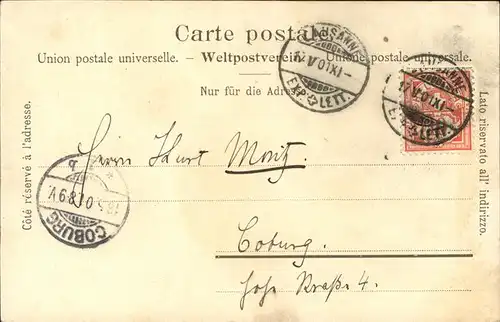 Carte postale.
Union postale universelle. – Weltpostverein. – Unione postale universale.
Nur für die Adresse.
Côté réservé à l'adresse.
Lato riservato all' indirizzo.
LAUSANNE
EXP. LETT.
LAUSANNE
EXP. LETT.
COBURG
Herrn Kurt Moritz
Coburg.
Hohe Straße 4.